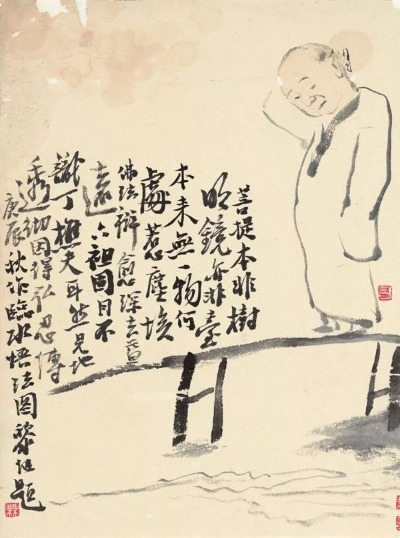 菩提本非樹
明鏡亦非臺
本来無一物何
處惹塵埃
佛法辯愈深去益
遠六祖固目不
識丁樵夫耳然見地
因得弘忍傳
庚辰秋作臨水悟法图題